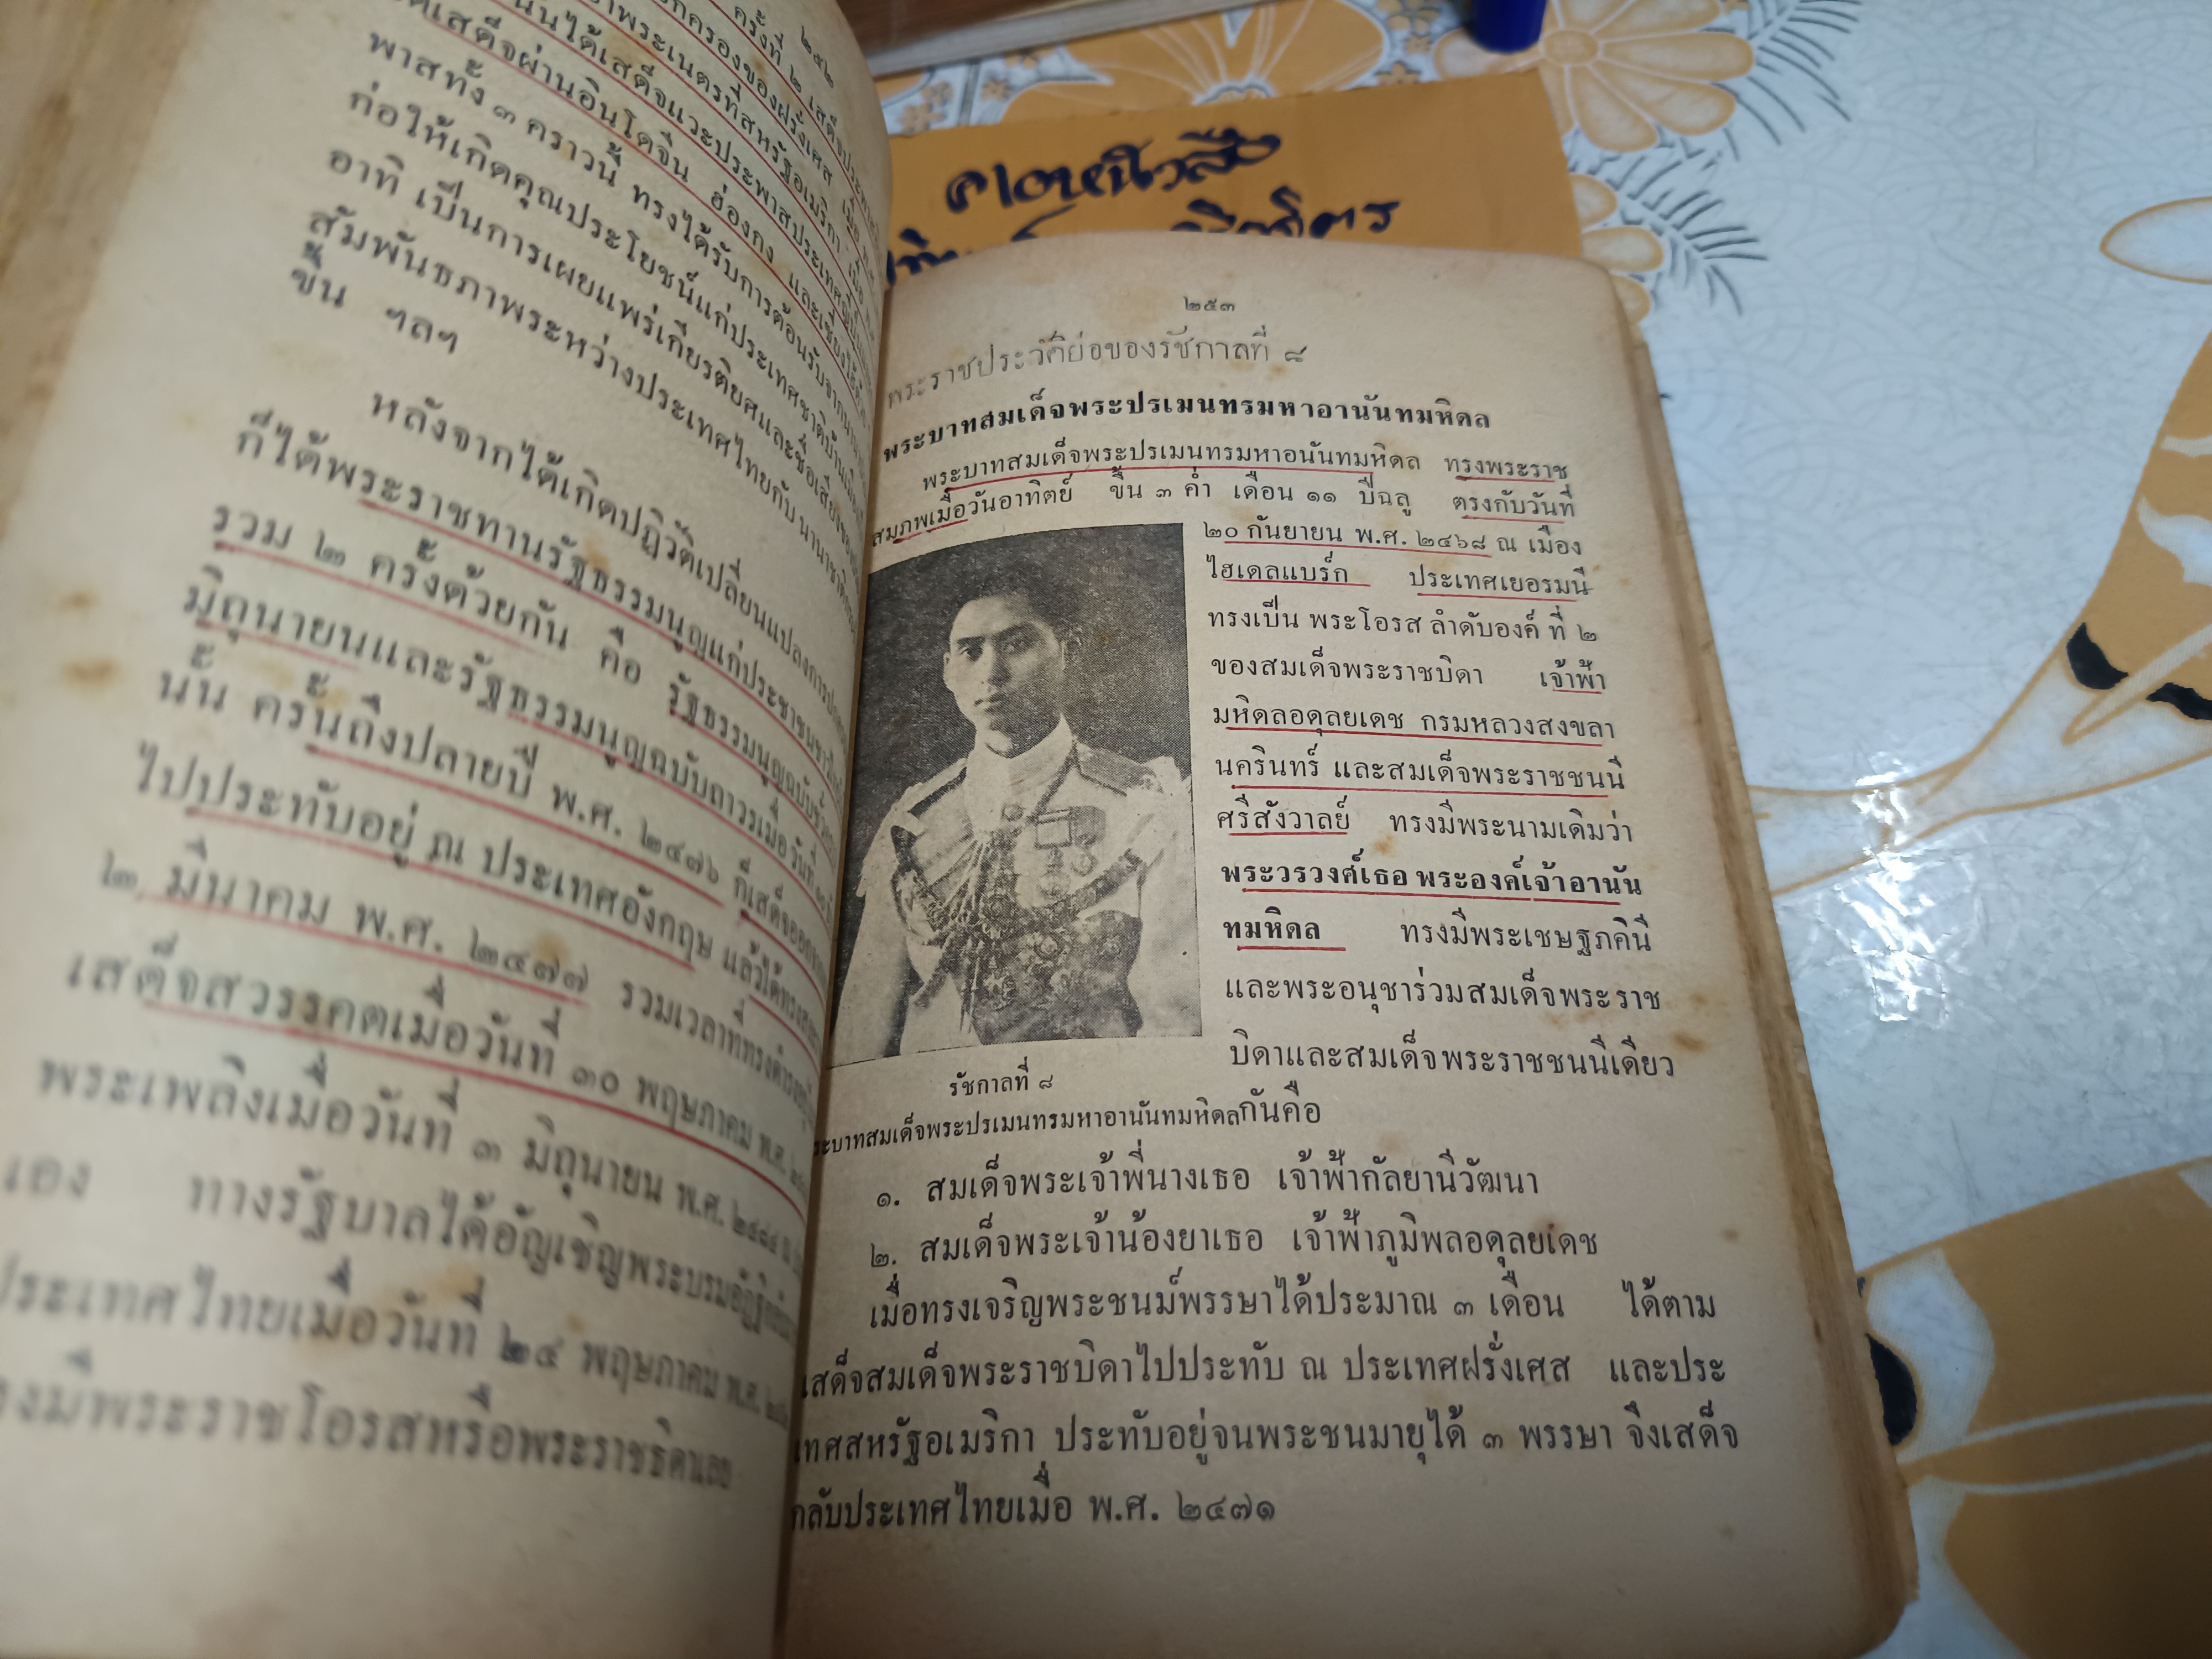 ๒๕๒
ครั้งที่ ๒
พาสทั้ง ๓ คราวนี้ ทรงได้รับการต้อนรับจาก
ก่อให้เกิดคุณประโยชน์แก่ประเทศชาติบ้านเมือง
อาทิ เป็นการเผยแพร่เกียรติยศและชื่อเสียง
สัมพันธภาพระหว่างประเทศไทยกับนานาชาติ
ขึ้น ฯลฯ
หลังจากได้เกิดปฏิวัติเปลี่ยนแปลงการ
ก็ได้พระราชทานรัฐธรรมนูญแก่ประชาชนชาวไทย
รวม ๒ ครั้งด้วยกัน คือ รัฐธรรมนูญฉบับชั่วคราว
มิถุนายนและรัฐธรรมนูญฉบับถาวรเมื่อวันที่ ๑๐
นั้น ครั้นถึงปลายปี พ.ศ. ๒๔๗๖ ก็เสด็จออกจาก
ไปประทับอยู่ ณ ประเทศอังกฤษ แล้วได้ทรงสละ
๒ มีนาคม พ.ศ. ๒๔๗๗ รวมเวลาที่ทรงดำรงอยู่
เสด็จสวรรคตเมื่อวันที่ ๓๐ พฤษภาคม พ.ศ.
พระเพลิงเมื่อวันที่ ๓ มิถุนายน พ.ศ. ๒๔๘๔
เอง ทางรัฐบาลได้อัญเชิญพระบรมอัฐิ
ประเทศไทยเมื่อวันที่ ๒๔ พฤษภาคม พ.ศ.
ทรงมีพระราชโอรสหรือพระราชธิดาเลย
๒๕๓
พระราชประวัติย่อของรัชกาลที่ ๘
พระบาทสมเด็จพระปรเมนทรมหาอานันทมหิดล
พระบาทสมเด็จพระปรเมนทรมหาอนันทมหิดล ทรงพระราช
สมภพเมื่อวันอาทิตย์ ขึ้น ๓ ค่ำ เดือน ๑๑ ปีฉลู ตรงกับวันที่
๒๐ กันยายน พ.ศ. ๒๔๖๘ ณ เมือง
ไฮเดลแบร์ก ประเทศเยอรมนี
ทรงเป็น พระโอรส ลำดับองค์ ที่ ๒
ของสมเด็จพระราชบิดา เจ้าฟ้า
มหิดลอดุลยเดช กรมหลวงสงขลา
นครินทร์ และสมเด็จพระราชชนนี
ศรีสังวาลย์ ทรงมีพระนามเดิมว่า
พระวรวงศ์เธอ พระองค์เจ้าอานัน
ทมหิดล ทรงมีพระเชษฐภคินี
และพระอนุชาร่วมสมเด็จพระราช
บิดาและสมเด็จพระราชชนนีเดียว
กันคือ
รัชกาลที่ ๘
ระบาทสมเด็จพระปรเมนทรมหาอานันทมหิดล
๑. สมเด็จพระเจ้าพี่นางเธอ เจ้าฟ้ากัลยานีวัฒนา
๒. สมเด็จพระเจ้าน้องยาเธอ เจ้าฟ้าภูมิพลอดุลยเดช
เมื่อทรงเจริญพระชนม์พรรษาได้ประมาณ ๓ เดือน ได้ตาม
เสด็จสมเด็จพระราชบิดาไปประทับ ณ ประเทศฝรั่งเศส และประ
เทศสหรัฐอเมริกา ประทับอยู่จนพระชนมายุได้ ๓ พรรษา จึงเสด็จ
กลับประเทศไทยเมื่อ พ.ศ. ๒๔๗๑